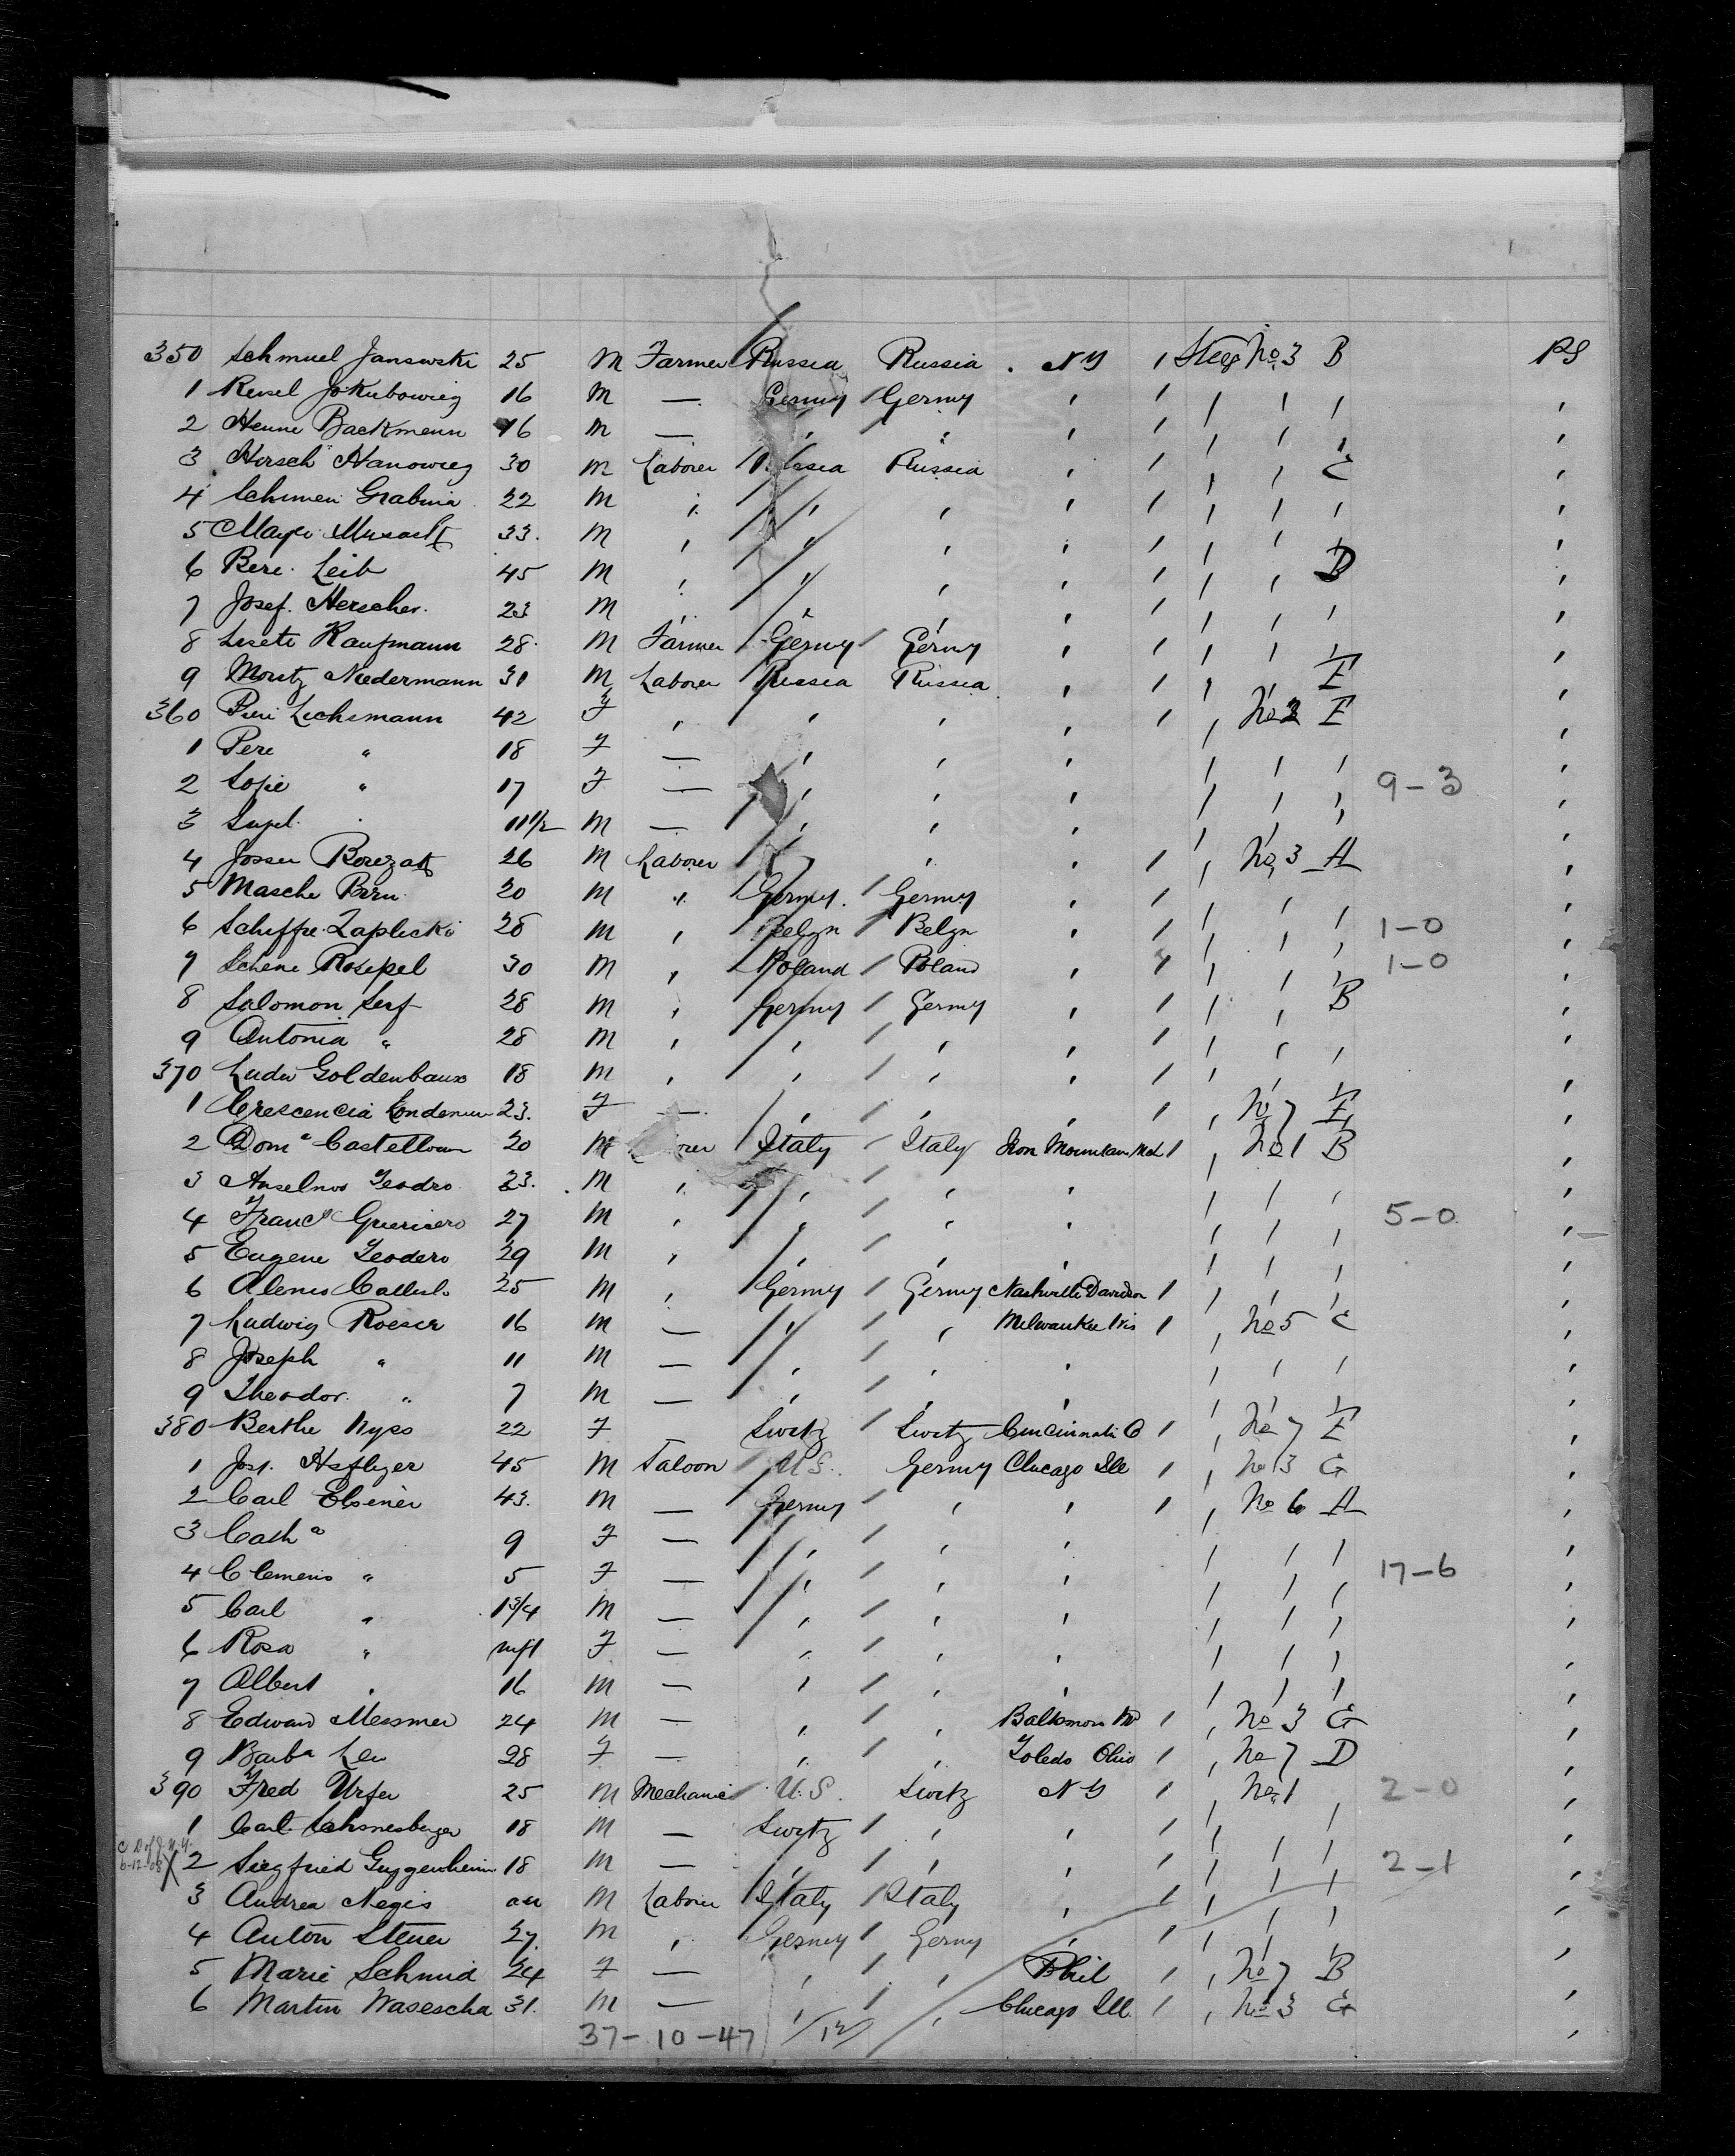 350 Schmuel Jansewski 25 M Farmer Russia Russia . N Y 1 Steeg No 3 B PS
1 Resel Jokubowieg 16 M — Germy / Germy " 1 " " " "
2 Henne Backmenn 16 M — " " " 1 " " " "
3 Hirsch Hanowieg 30 M Laborer Russia Russia " 1 " " C "
4 Schimen Grabina 22 M " " " " 1 " " " "
5 Mayer 33. M " " " " 1 " " " "
6 Bere Leib 45 M " " " " 1 " " D "
7 Josef Herscher. 23 M " " " " 1 " " " "
8 Lisete Kaufmann 28 M Farmer Germy / Germy " 1 " " " "
9 Moritz Niedermann 31 M Laborer Russia Russia " 1 " " E "
360 Peri Lichsmann 42 F " " " " 1 " No 3 E "
1 Pere " 18 F — " " " " " " "
2 Sofie " 17 F — " " " " " " 9-3 "
3 " 11 1/2 M — " " " " " " "
4 Josser 26 M Laborer " " 1 " No 3 A "
5 Masche Birn 20 M " Germy. / Germy " 1 " " " "
6 Scheffre Zaplicki 28 M " Belgn / Belgn " 1 " " " 1-0 "
7 Schene Rosepel 30 M " Poland / Poland " 1 " " " 1-0 "
8 Salomon Serf 28 M " Germy / Germy " 1 " " B "
9 Antonia " 28 M " " / " " 1 " " " "
370 Ludw Goldenbaum 18 M " " / " " 1 " " " "
1 Crescencia 23. F — " " " 1 " No 7 E "
2 Domᵃ Castellvan 20 M Italy / Italy Iron Mountain Mch 1 " No 1 B "
3 Anselmo Teodro 23. M " " / " " " " " "
4 Francᵒ Gueriero 27 M " " / " " " " " 5-0 "
5 Eugene Teodero 29 M " " / " " " " " "
6 25 M " Germy / Germy Nashville Davidson 1 " " " "
7 Ludwig Roeser 16 M — " / " Milwaukee Wis 1 " No 5 C "
8 Joseph " 11 M — " / " " " " " "
9 Theodor. " 7 M — " / " " " " " "
380 Berthe Nyps 22 F — Switz / Switz Cincinnati O 1 " No 7 E "
1 Jos. Hefliger 45 M Saloon U S. Germy Chicago Ill 1 " No 3 G "
2 Carl Elsener 43. M — Germy / " " 1 " No 6 A "
3 Cath " 9 F — " / " " " " " "
4 Clemens " 5 F — " / " " " " " 17-6 "
5 Carl " 1 3/4 M — " / " " " " " "
6 Rosa " inft F — " / " " " " " "
7 Albert " 16 M — " / " " " " " "
8 Edward Messmer 24 M — " / " Baltimore Md 1 " No 3 G "
9 Barbᵃ Leu 28 F — " / " Toledo Ohio 1 " No 7 D "
390 Fred Urfer 25 M Mechanic U.S. Switz N Y 1 " No 1 2-0 "
1 Carl 18 M — Switz / " " 1 " " " "
6-12-08 X 2 Siegfried Guggenheim 18 M — " / " " 1 " " " 2-1 "
3 Andrea Negis M Laborer Italy / Italy " 1 " " " "
4 Anton Steuer 27. M " Germy / Germy " 1 " " " "
5 Marie Schmid 24 F — " / " Phil 1 " No 7 B "
6 Martin Wasescha 31. M — " / " Chicago Ill. 1 " No 3 G "
37-10-47